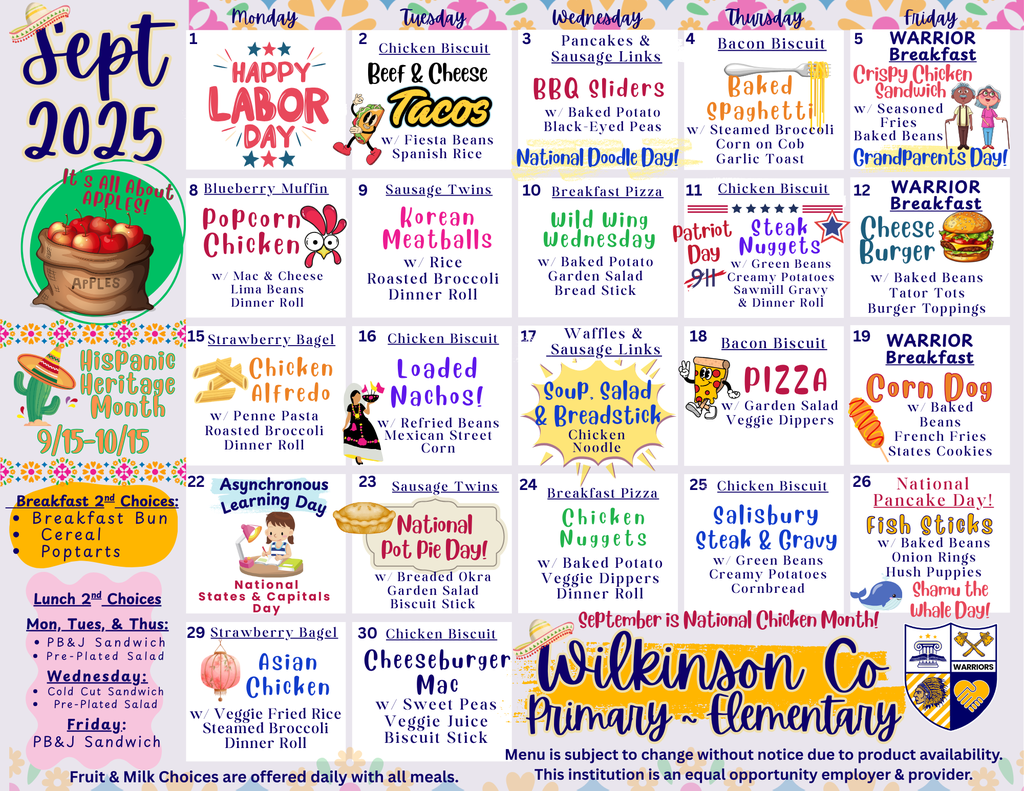 Sept
2025
Monday
Tuesday
Wednesday
Thursday
Friday
1
HAPPY
LABOR
DAY
2
Chicken Biscuit
Beef & Cheese
Tacos
w/ Fiesta Beans
Spanish Rice
3
Pancakes &
Sausage Links
BBQ Sliders
w/ Baked Potato
Black-Eyed Peas
National Doodle Day!
4
Bacon Biscuit
Baked
Spaghetti
w/ Steamed Broccoli
Corn on Cob
Garlic Toast
5
WARRIOR
Breakfast
Crispy Chicken
Sandwich
w/ Seasoned
Fries
Baked Beans
GrandParents Day!
It's All About
APPLES!
APPLES
8
Blueberry Muffin
Popcorn
Chicken
w/ Mac & Cheese
Lima Beans
Dinner Roll
9
Sausage Twins
Korean
Meatballs
w/ Rice
Roasted Broccoli
Dinner Roll
10
Breakfast Pizza
Wild Wing
Wednesday
w/ Baked Potato
Garden Salad
Bread Stick
11
Chicken Biscuit
Patriot
Day
911
Steak
Nuggets
w/ Green Beans
Creamy Potatoes
Sawmill Gravy
& Dinner Roll
12
WARRIOR
Breakfast
Cheese
Burger
w/ Baked Beans
Tator Tots
Burger Toppings
Hispanic
Heritage
Month
9/15-10/15
15
Strawberry Bagel
Chicken
Alfredo
w/ Penne Pasta
Roasted Broccoli
Dinner Roll
16
Chicken Biscuit
Loaded
Nachos!
w/ Refried Beans
Mexican Street
Corn
17
Waffles &
Sausage Links
Soup, Salad
& Breadstick
Chicken
Noodle
18
Bacon Biscuit
PIZZA
w/ Garden Salad
Veggie Dippers
19
WARRIOR
Breakfast
Corn Dog
w/ Baked
Beans
French Fries
States Cookies
Breakfast 2nd Choices:
• Breakfast Bun
• Cereal
• Poptarts
22
Asynchronous
Learning Day
National
States & Capitals
Day
23
Sausage Twins
National
Pot Pie Day!
w/ Breaded Okra
Garden Salad
Biscuit Stick
24
Breakfast Pizza
Chicken
Nuggets
w/ Baked Potato
Veggie Dippers
Dinner Roll
25
Chicken Biscuit
Salisbury
Steak & Gravy
w/ Green Beans
Creamy Potatoes
Cornbread
26
National
Pancake Day!
Fish Sticks
w/ Baked Beans
Onion Rings
Hush Puppies
Shamu the
Whale Day!
Lunch 2nd Choices
Mon, Tues, & Thus:
• PB&J Sandwich
• Pre-Plated Salad
Wednesday:
• Cold Cut Sandwich
• Pre-Plated Salad
Friday:
PB&J Sandwich
29
Strawberry Bagel
Asian
Chicken
w/ Veggie Fried Rice
Steamed Broccoli
Dinner Roll
30
Chicken Biscuit
Cheeseburger
Mac
w/ Sweet Peas
Veggie Juice
Biscuit Stick
September is National Chicken Month!
Wilkinson Co
Primary ~ Elementary
WARRIORS
Menu is subject to change without notice due to product availability.
This institution is an equal opportunity employer & provider.
Fruit & Milk Choices are offered daily with all meals.